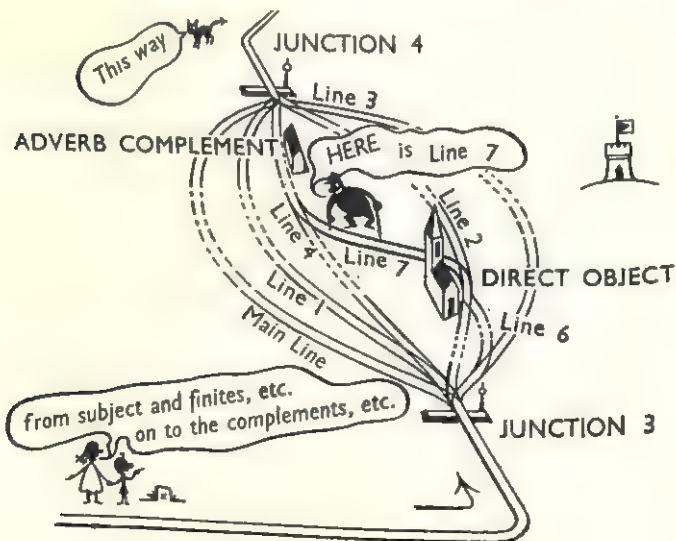 This way
JUNCTION 4
Line 3
ADVERB COMPLEMENT
HERE is Line 7
Line 2
Line 4
Line 7
DIRECT OBJECT
Line 1
Line 6
Main Line
from subject and finites, etc.
on to the complements, etc.
JUNCTION 3